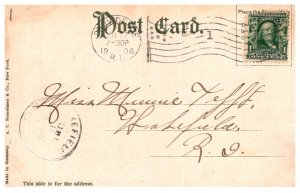 Place the
Post Card.
7-30P
1906
R.I.
1
Miss Minnie Tefft,
Wakefield,
R. I.
This side is for the address.
Made in Germany. A. C. Bosselman & Co., New York.